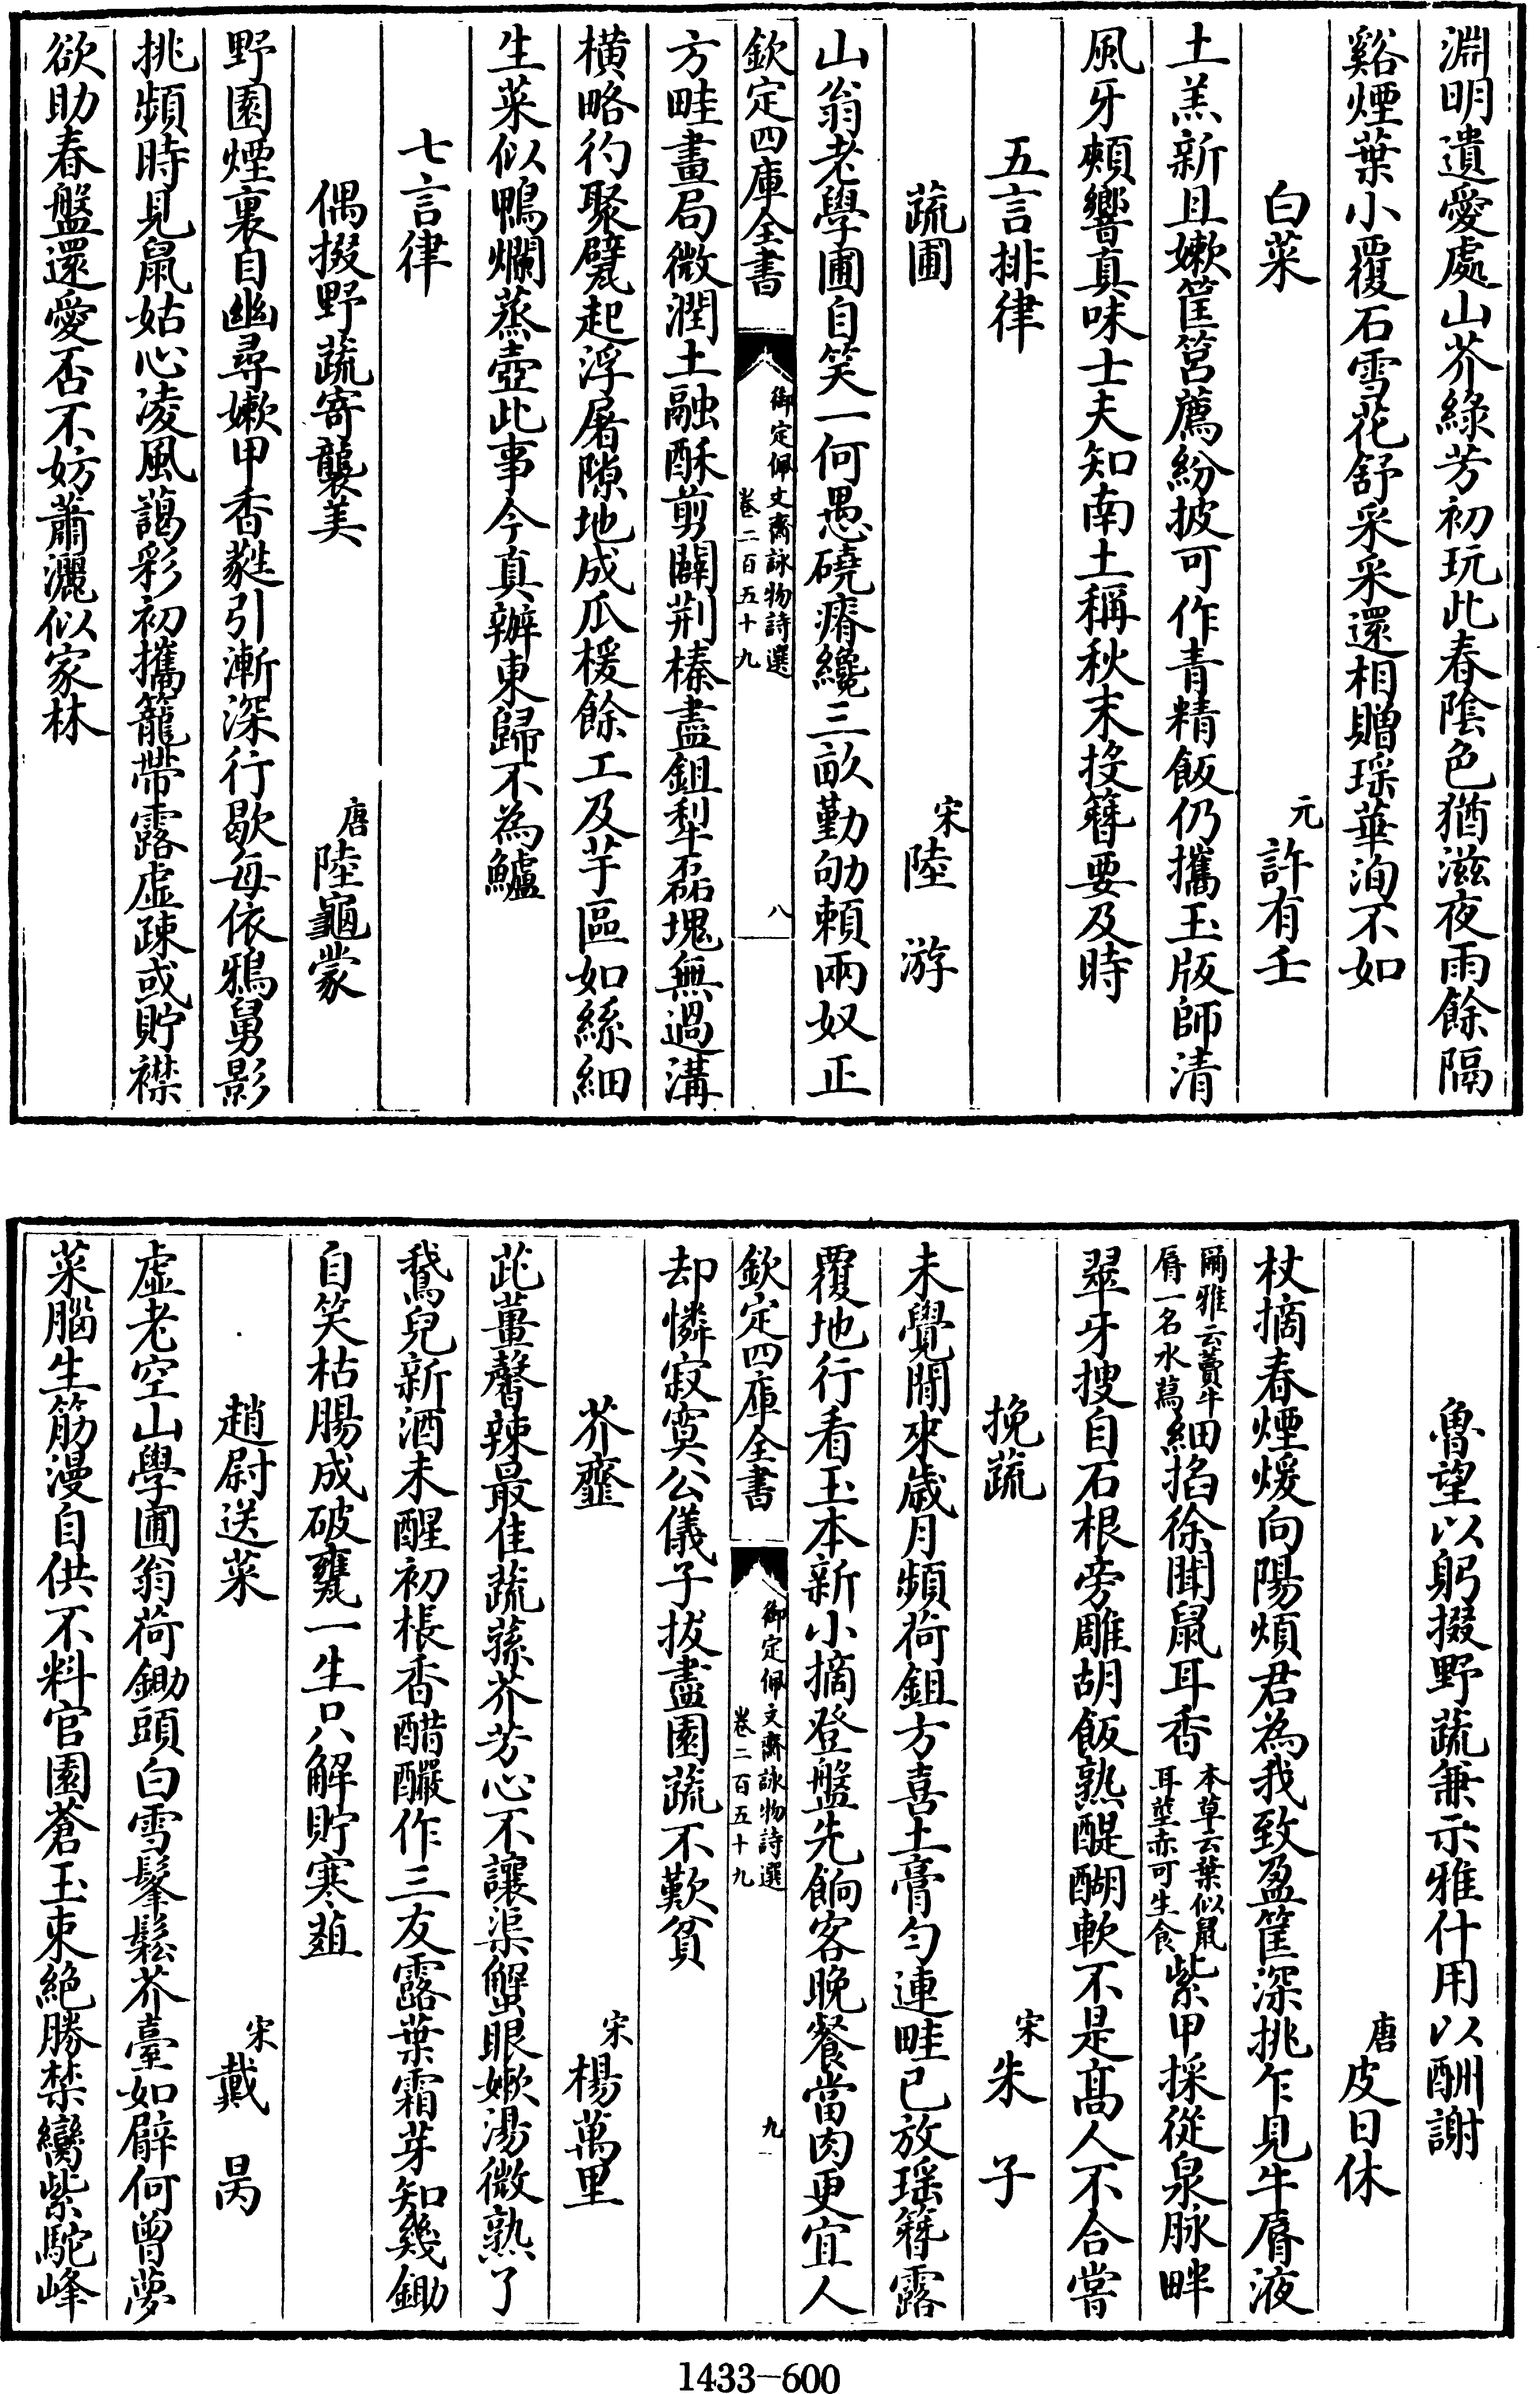 淵明遺愛處山芥綠芳初玩此春陰色猶滋夜雨餘隔
谿煙葉小覆石雪花舒采采還相贈瑶華洵不如
白菜 元許有壬
土羔新且嫩筐筥薦紛披可作青精飯仍攜玉版師清
風牙頰響真味士夫知南土稱秋末投簪要及時
五言排律
蔬圃 宋陸游
山翁老學圃自笑一何愚磽瘠纔三畝勤劬賴兩奴正
欽定四庫全書 御定佩文齋詠物詩選 卷二百五十九 八
方畦畫局微潤土融酥剪闢荆榛盡鉏犁磊塊無過溝
橫略彴聚甓起浮屠隙地成瓜援餘工及芋區如絲細
生菜似鴨爛蒸壺此事今真辦東歸不為鱸
七言律
偶掇野蔬寄襲美 唐陸龜蒙
野園煙裏自幽尋嫩甲香蕤引漸深行歇每依鴉舅影
挑頻時見鼠姑心凌風藹彩初攜籠帶露虚疎或貯襟
欲助春盤還愛否不妨蕭灑似家林
魯望以躬掇野蔬兼示雅什用以酬謝
唐皮日休
杖摘春煙煖向陽煩君為我致盈筐深挑乍見牛脣液
爾雅云藚牛脣一名水蕮細掐徐聞鼠耳香本草云葉似鼠耳莖赤可生食紫甲採從泉脉畔
翠牙搜自石根旁雕胡飯熟醍醐軟不是髙人不合嘗
挽蔬 宋朱子
未覺閒來歲月頻荷鉏方喜土膏勻連畦已放瑶簪露
覆地行看玉本新小摘登盤先餉客晚餐當肉更宜人
欽定四庫全書 御定佩文齋詠物詩選 卷二百五十九 九
却憐寂寞公儀子拔盡園蔬不歎貧
芥虀 宋楊萬里
茈薑馨辣最佳蔬蓀芥芳心不讓渠蟹眼嫩湯微熟了
鵞兒新酒未醒初棖香醋釅作三友露葉霜芽知幾鋤
自笑枯腸成破甕一生只解貯寒葅
趙尉送菜 宋戴昺
虛老空山學圃翁荷鋤頭白雪髼鬆芥臺如臂何曾夢
菜腦生筋漫自供不料官園蒼玉束絕勝禁臠紫駝峰
1433-600